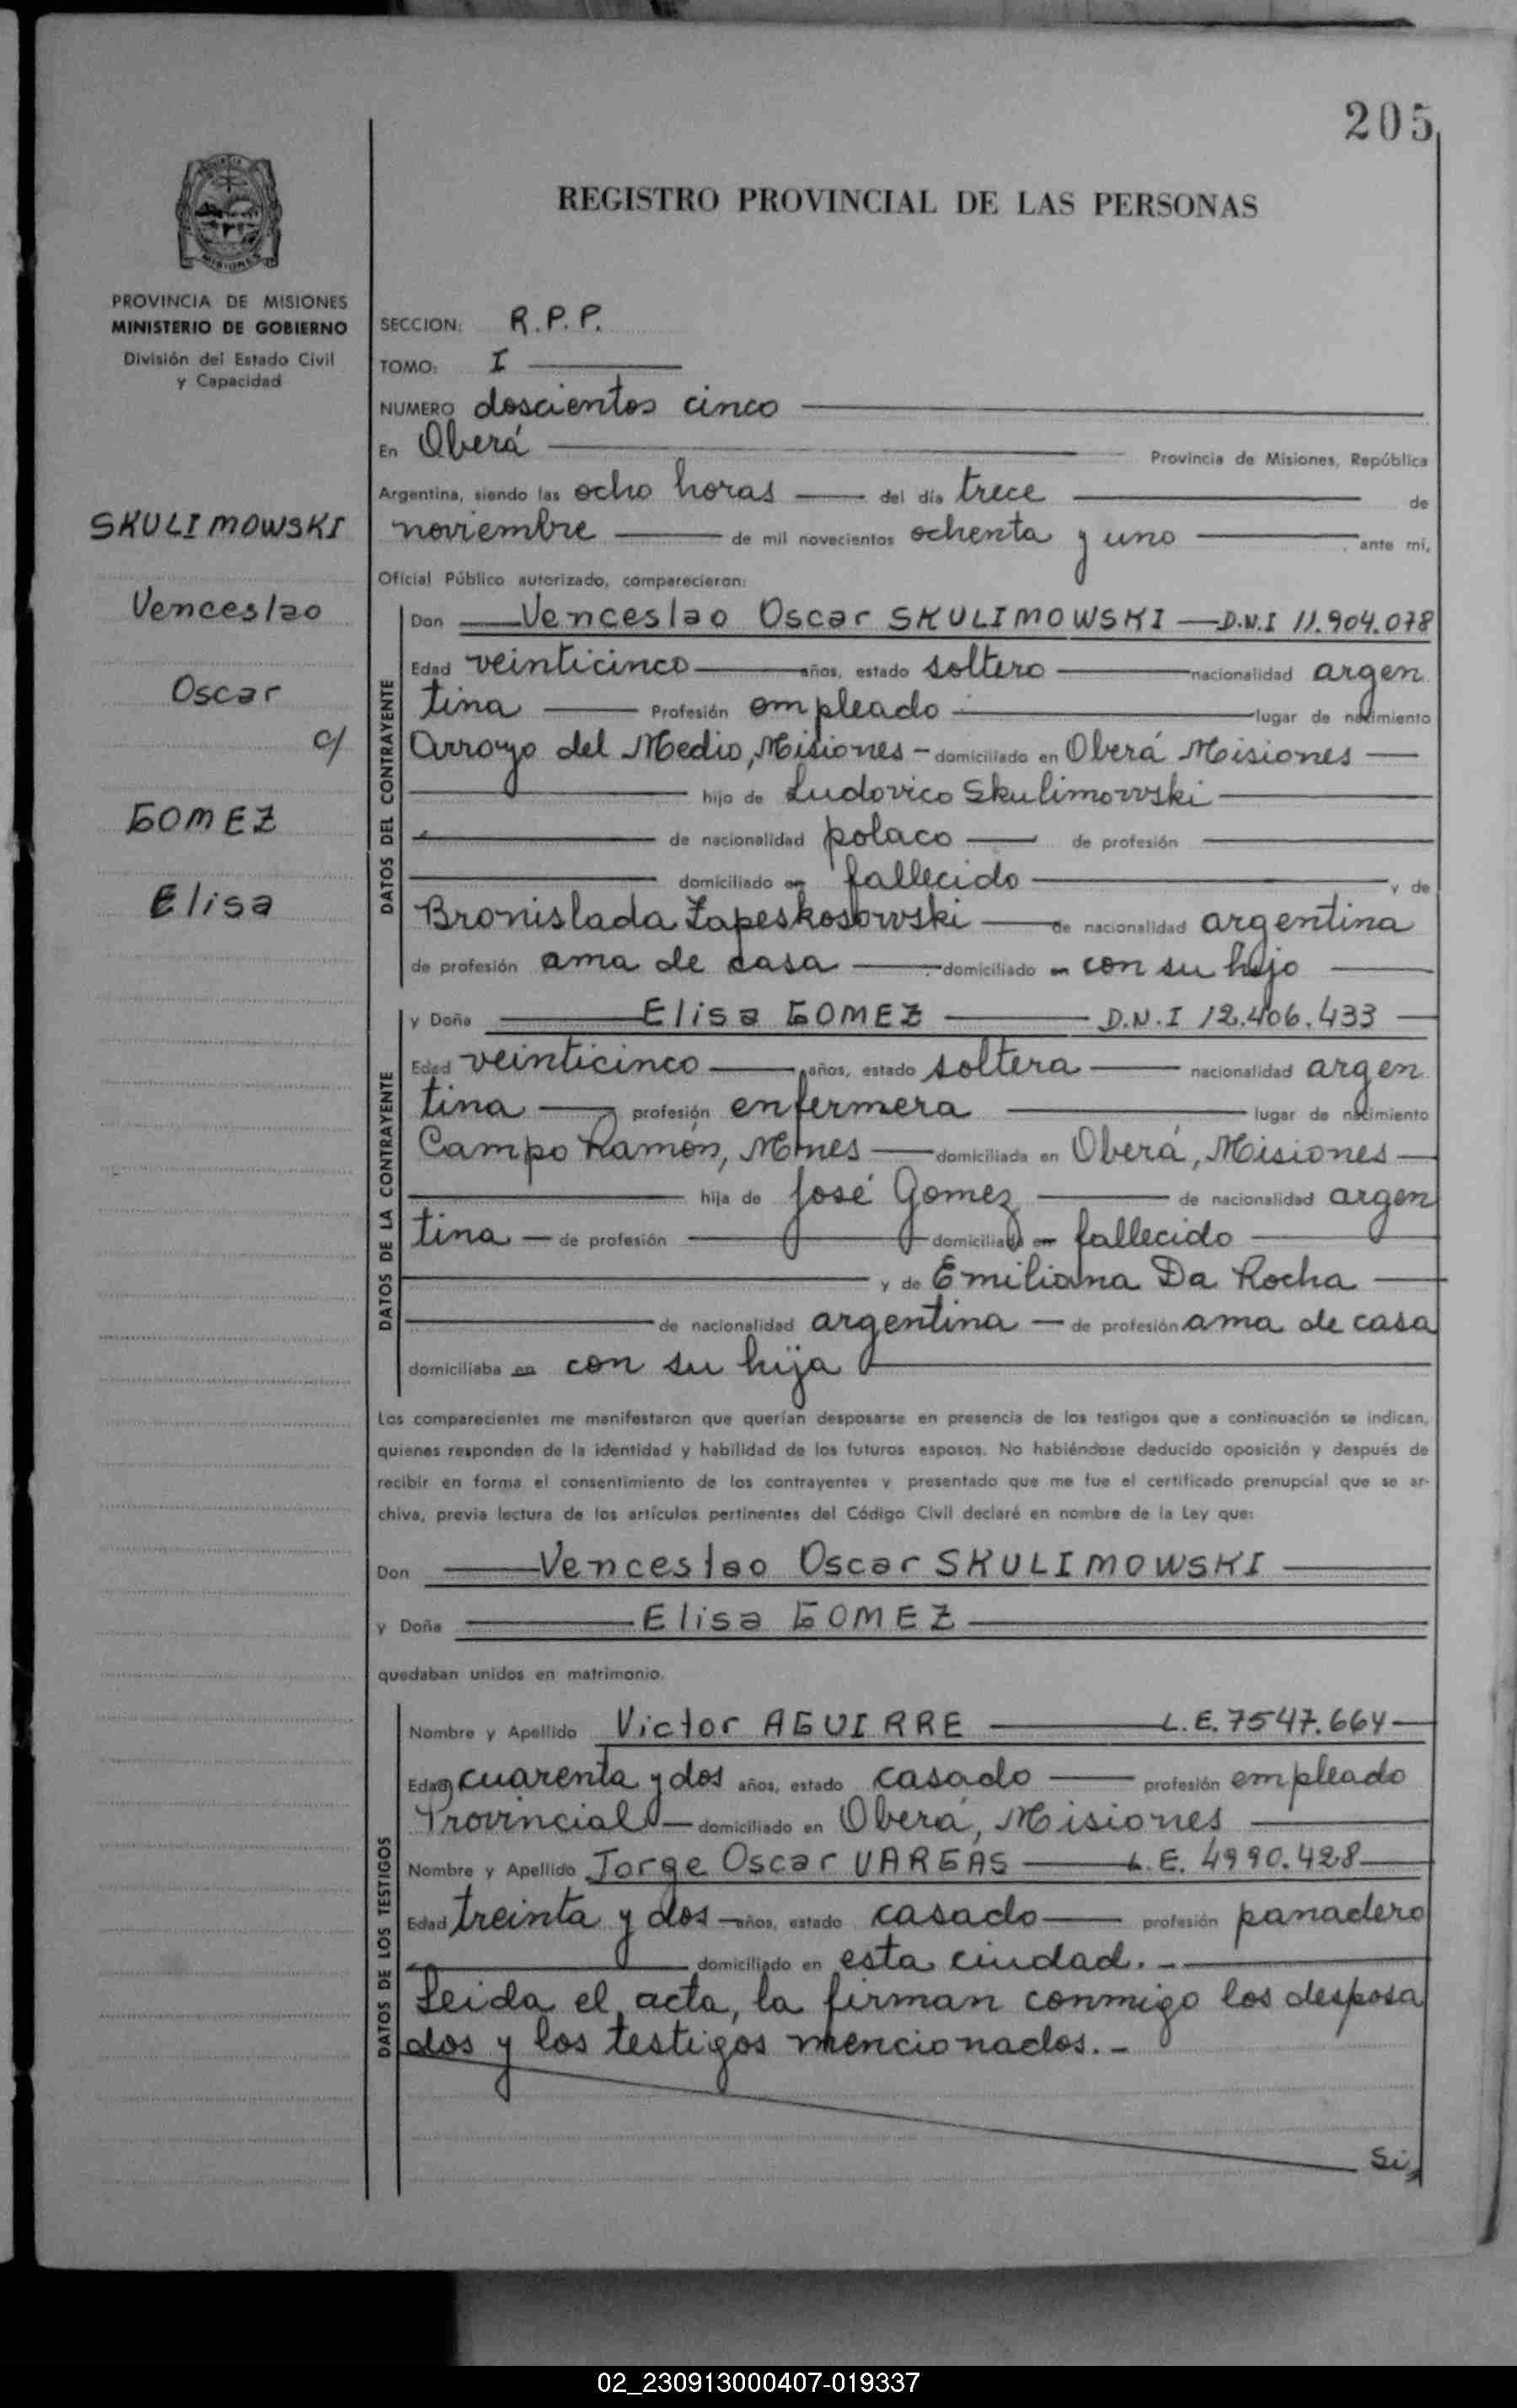 205
REGISTRO PROVINCIAL DE LAS PERSONAS
MISIONES
PROVINCIA DE MISIONES
MINISTERIO DE GOBIERNO
División del Estado Civil
y Capacidad
SKULIMOWSKI
Venceslao
Oscar
c/
GOMEZ
Elisa
SECCION: R.P.P.
TOMO: I
NUMERO doscientos cinco
En Oberá Provincia de Misiones, República
Argentina, siendo las ocho horas del día trece de
noviembre de mil novecientos ochenta y uno ante mí,
Oficial Público autorizado, comparecieron:
DATOS DEL CONTRAYENTE
Don Venceslao Oscar SKULIMOWSKI D.N.I 11.904.078
Edad veinticinco años, estado soltero nacionalidad argen
tina Profesión empleado lugar de nacimiento
Arroyo del Medio, Misiones - domiciliado en Oberá Misiones
hijo de Ludovico Skulimowski
de nacionalidad polaco de profesión
domiciliado en fallecido y de
Bronislada Zapeskosowski de nacionalidad argentina
de profesión ama de casa domiciliado en con su hijo
DATOS DE LA CONTRAYENTE
y Doña Elisa GOMEZ D.N.I 12.406.433
Edad veinticinco años, estado soltera nacionalidad argen
tina profesión enfermera lugar de nacimiento
Campo Ramón, Mnes domiciliada en Oberá, Misiones
hija de José Gomez de nacionalidad argen
tina de profesión domiciliado en fallecido
y de Emiliana Da Rocha
de nacionalidad argentina de profesión ama de casa
domiciliaba en con su hija
Los comparecientes me manifestaron que querían desposarse en presencia de los testigos que a continuación se indican,
quienes responden de la identidad y habilidad de los futuros esposos. No habiéndose deducido oposición y después de
recibir en forma el consentimiento de los contrayentes y presentado que me fue el certificado prenupcial que se ar-
chiva, previa lectura de los artículos pertinentes del Código Civil declaré en nombre de la Ley que:
Don Venceslao Oscar SKULIMOWSKI
y Doña Elisa GOMEZ
quedaban unidos en matrimonio.
DATOS DE LOS TESTIGOS
Nombre y Apellido Victor AGUIRRE L.E. 7547.664
Edad cuarenta y dos años, estado casado profesión empleado
Provincial domiciliado en Oberá, Misiones
Nombre y Apellido Jorge Oscar VARGAS L.E. 4990.428
Edad treinta y dos años, estado casado profesión panadero
domiciliado en esta ciudad.-
Leida el acta, la firman conmigo los desposa
dos y los testigos mencionados.-
Si
02_230913000407-019337